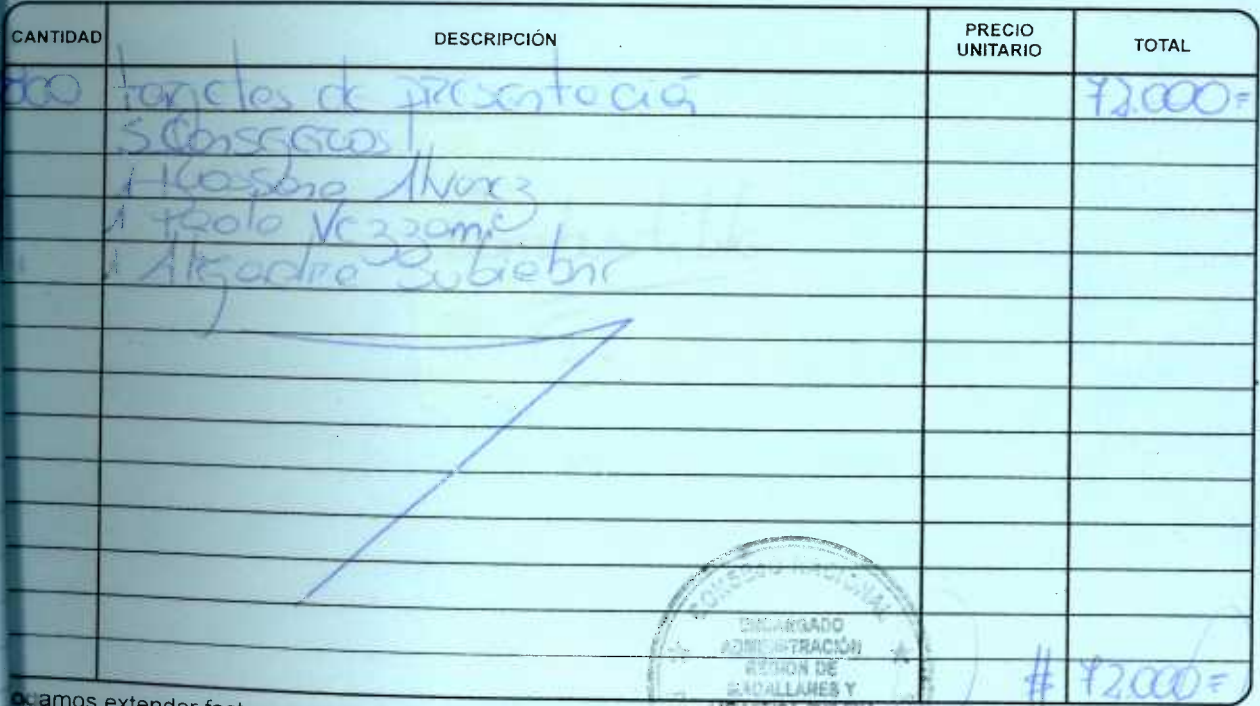 CANTIDAD DESCRIPCIÓN PRECIO UNITARIO TOTAL
tarjetas de presentación 72.000=
5 Consejeros
1 Alvarez
1 Paolo Vezzani
1 Alejandra Subiabre
CONSEJO NACIONAL
ENCARGADO
ADMINISTRACIÓN
REGION DE
MAGALLANES Y
# 72.000=
amos extender